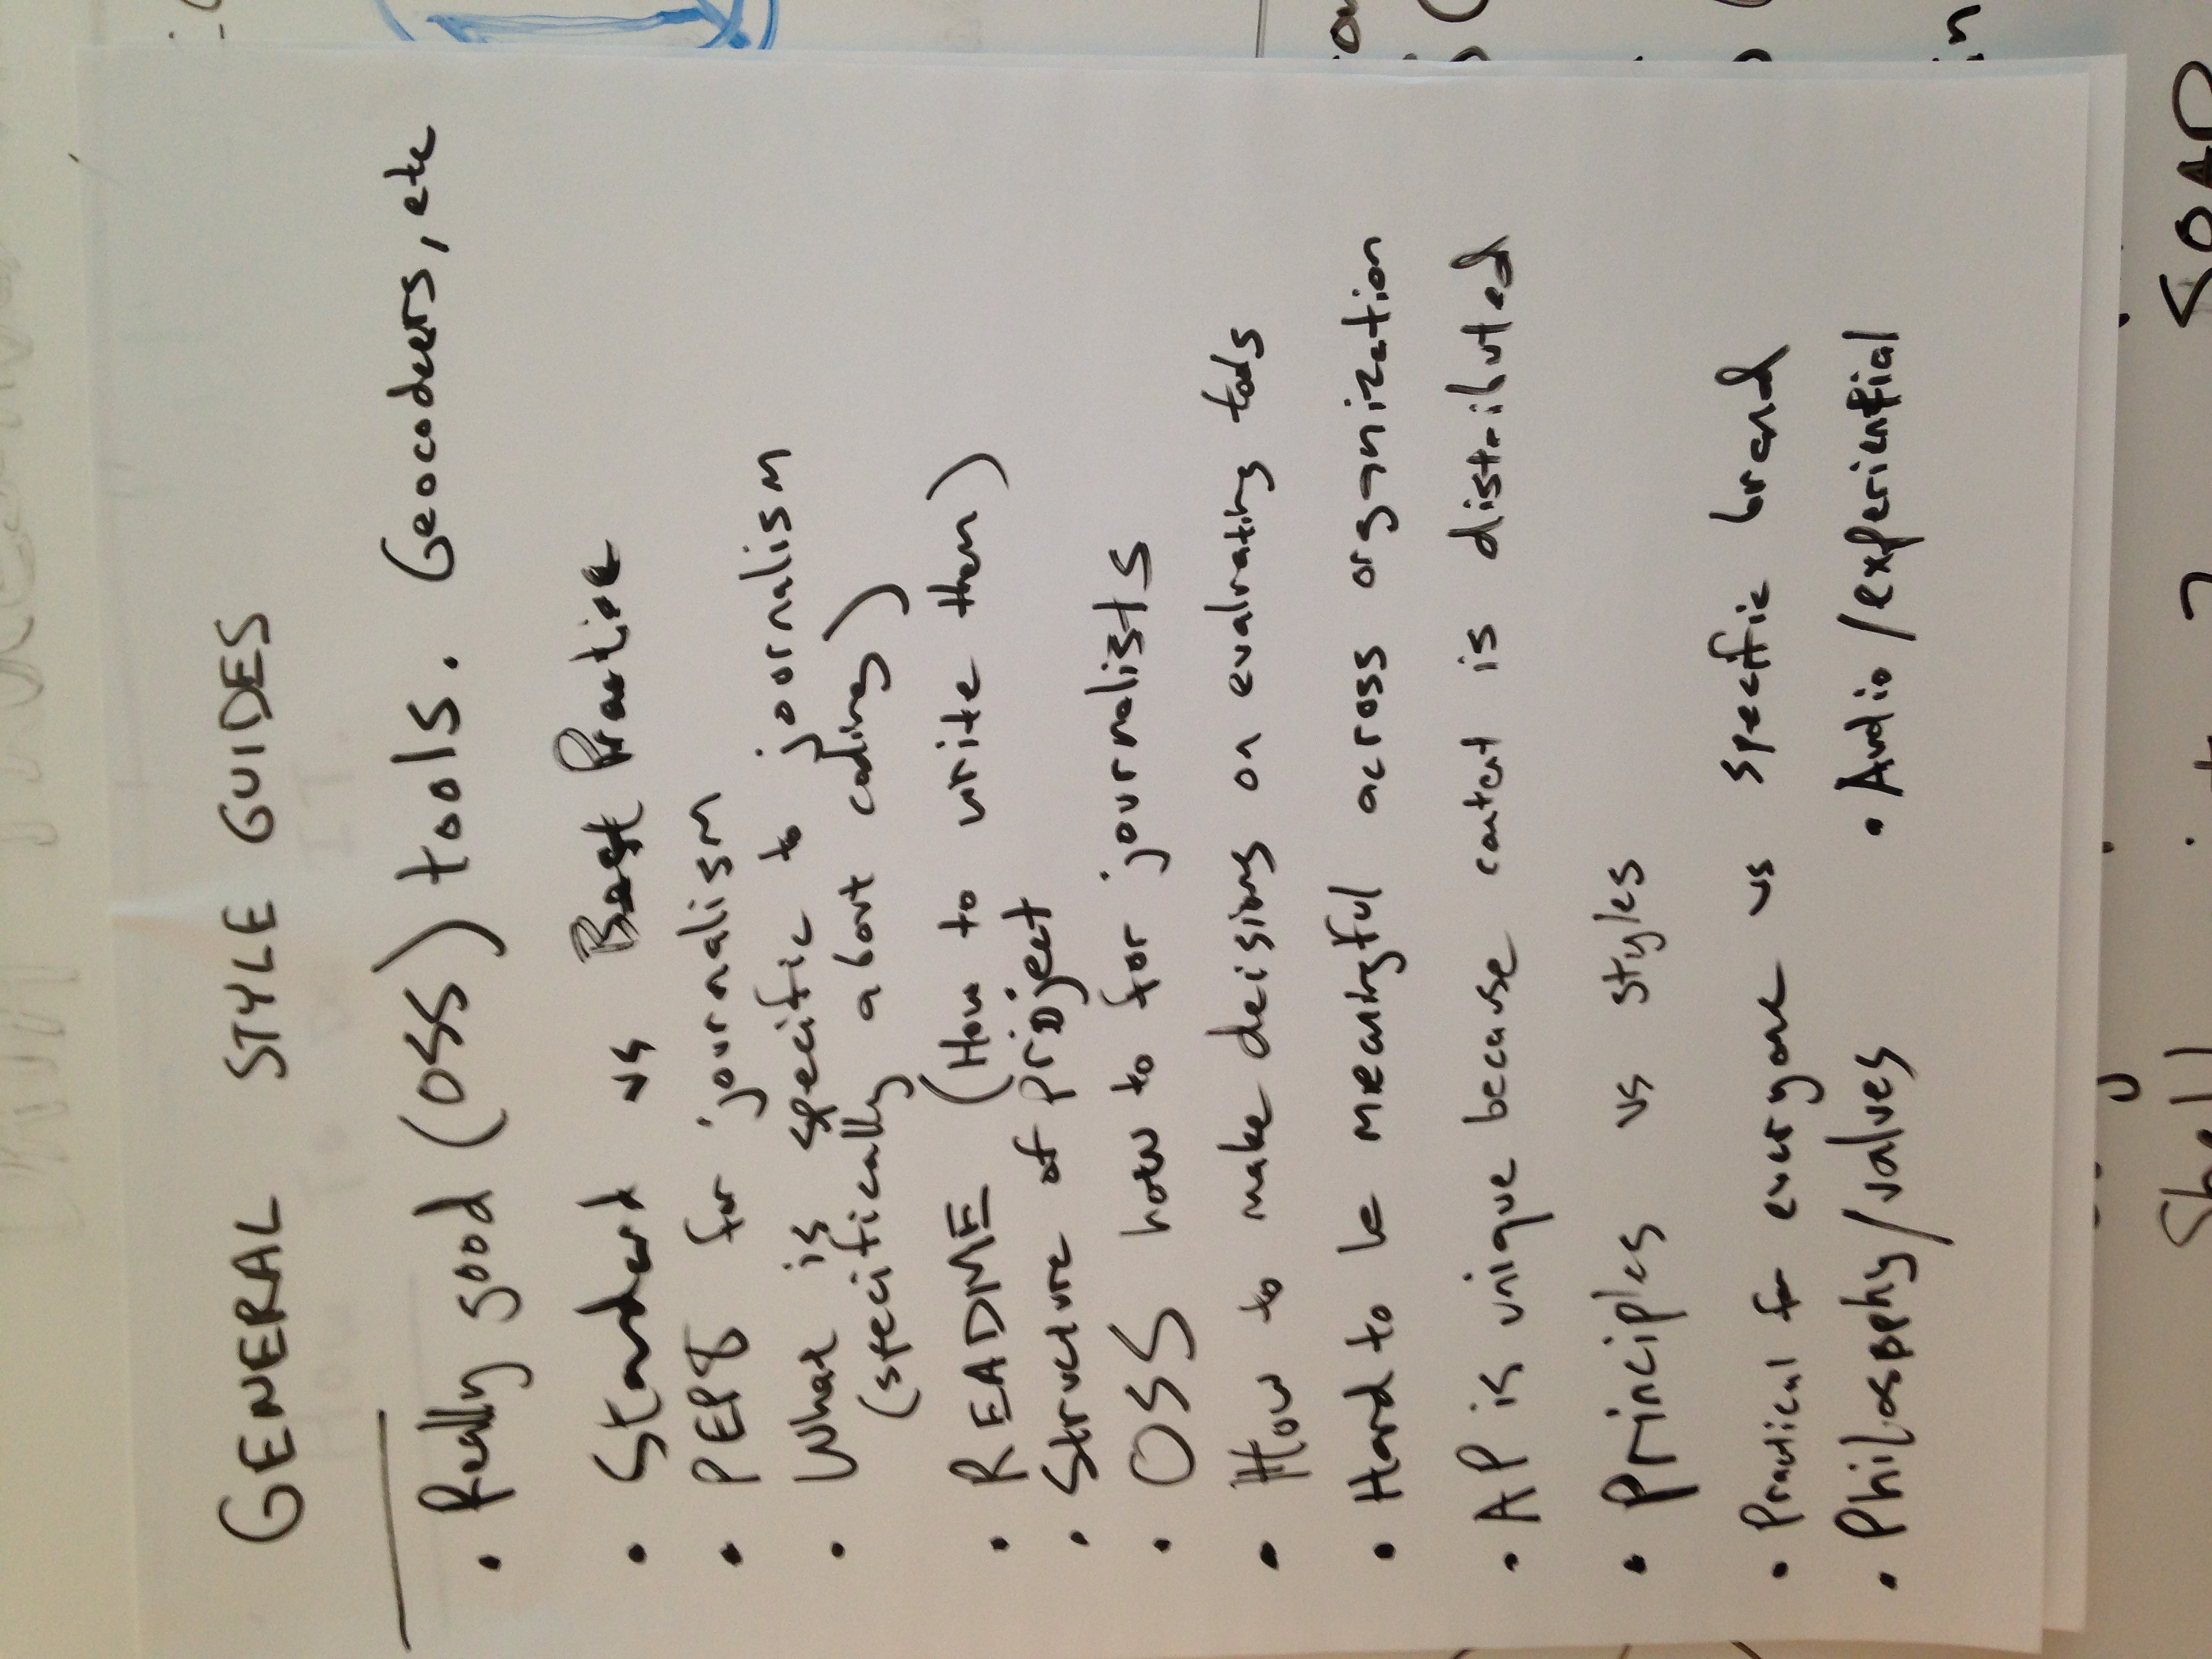 GENERAL STYLE GUIDES
HOW TO DO IT.
• Really good (OSS) tools. Geocoders, etc
• Standard vs Best Practice
• PEP8 for journalism
• What is specific to journalism
(specifically about coding)
• README (How to write them)
• Structure of project
• OSS how to for journalists
• How to make decisions on evaluating tools
• Hard to be meaningful across organization
• AP is unique because content is distributed
• Principles vs styles
• Practical for everyone vs specific brand
• Philosophy/values • Audio/experiential
in
Shell
SOAP